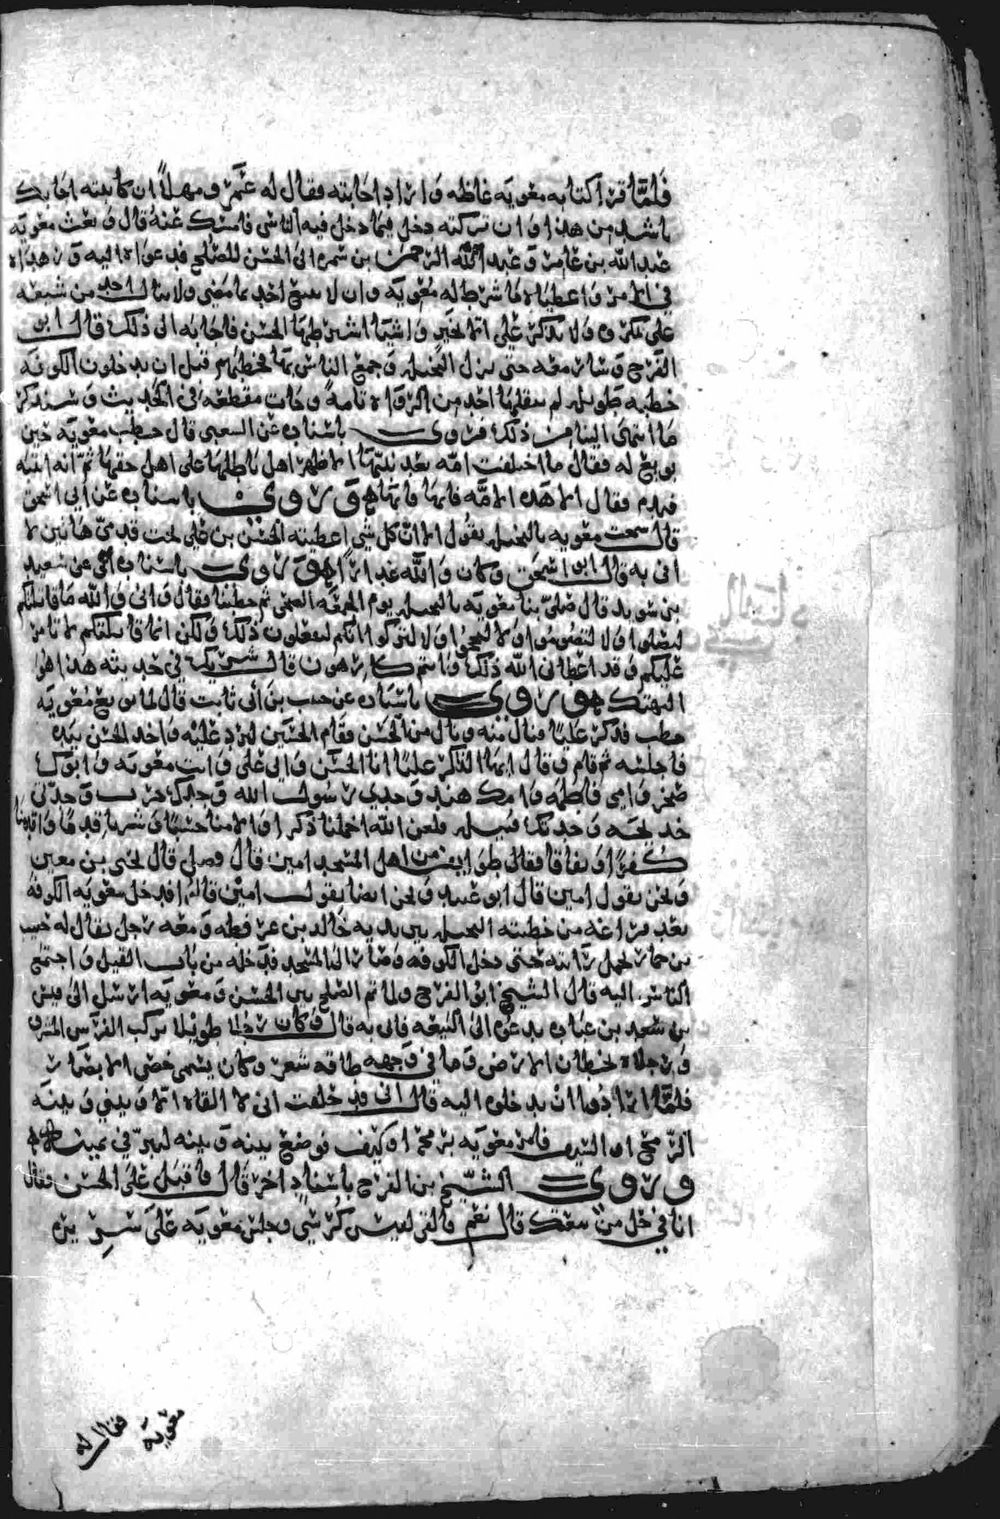 فلما قرا كتابه معويه غاظه واراد اجابته فقال له عمرو مهلا ان كاتبته اجابك
باشد من هذا وان تركته دخل فيما دخل فيه الناس فامسك عنه قال وبعث معويه
عبدالله بن عامر وعبد الرحمن بن سمره الى الحسن للصلح فدعواه اليه وزهداه
في الامر واعطياه ما شرط له معويه وان لا يتبع احد بما مضى ولا ينال احد من شيعه
علي بمكروه ولا يذكر علي الا بخير واشيا اشترطها الحسن فاجابه الى ذلك قال ابو
الفرج وسار معويه حتى نزل النخيله وجمع الناس بها فخطبهم قبل ان يدخلوا الكوفه
خطبه طويله لم ينقلها احد من الرواه تامه وجات مقطعه في الحديث وسنذكر
ما انتهى الينا من ذلك فروى باسناده عن الشعبي قال خطب معويه حين
بويع له فقال ما اختلفت امه بعد نبيها الا ظهر اهل باطلها على اهل حقها ثم انه انتبه
فندم فقال الا هذه الامه فانها وانها وروى باسناده عن ابي اسحق
قال سمعت معويه بالنخيله يقول الا ان كل شي اعطيته الحسن بن علي تحت قدمي هاتين لا
افي به قال ابو اسحق وكان والله غدارا وروى باسناده عن سعيد
بن سويد قال صلى بنا معويه بالنخيله يوم الجمعه ثم خطبنا فقال واني والله ما قاتلتكم
لتصلوا ولا لتصوموا ولا لتحجوا ولا لتزكوا انكم لتفعلون ذلك ولكن انما قاتلتكم لاتامر
عليكم وقد اعطاني الله ذلك وانتم كارهون قال شريك في حديثه هذا هو
التهتك وروى باسناده عن حبيب بن ابي ثابت قال لما بويع معويه
خطب فذكر عليا فنال منه ونال من الحسن فقام الحسين ليرد عليه واخذ الحسن بيده
فاجلسه ثم قام وقال ايها الذاكر عليا انا الحسن وابي علي وانت معويه وابوك
صخر وامي فاطمه وامك هند وجدي رسول الله وجدك حرب وجدتي
خديجه وجدتك قتيله فلعن الله اخملنا ذكرا والامنا حسبا وشرنا قدما واقدمنا
كفرا ونفاقا فقال طوايف من اهل المسجد امين قال فضل قال يحيى بن معين
ونحن نقول امين قال ابو عبيد ونحن ايضا نقول امين قال فدخل معويه الكوفه
بعد فراغه من خطبته بالنخيله بين يديه خالد بن عرفطه ومعه رجل يقال له حبيب
بن حمار يحمل رايته حتى دخل الكوفه وصار الى المسجد فدخله من باب الفيل واجتمع
الناس اليه قال الشيخ ابو الفرج ولما تم الصلح بين الحسن ومعويه ارسل الى قيس
بن سعد بن عباده يدعوه الى البيعه فاتى به قال وكان رجلا طويلا يركب الفرس المشرف
ورجلاه تخطان الارض وما في وجهه طاقه شعر وكان يسمى خصي الانصار
فلما ارادوا ان يدخلوه اليه قال اني قد حلفت اني لا القاه الا وبيني وبينه
الرمح او السيف فامر معويه برمح او سيف فوضع بينه وبينه ليبر في يمينه
وروى الشيخ بن الفرج باسناد اخر قال واقبل على الحسن فقال
انا في حل من بيعتك قال نعم والقي لقيس كرسي وجلس معويه على سريره
فقال له معويه